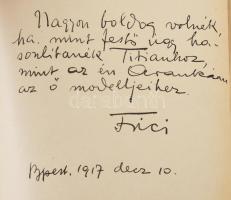 Nagyon boldog volnék,
ha, mint festő úgy ha-
sonlítanék Titianhoz,
mint az én Arankám
az ő modelljeihez.
Frici
Bpest, 1917 decz 10.